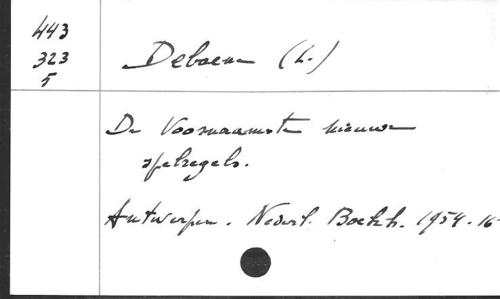 443
323
5
Debaene (L.)
De Voornaamste nieuwe
spelregels.
Antwerpen. Nederl. Boekh. 1954. 16